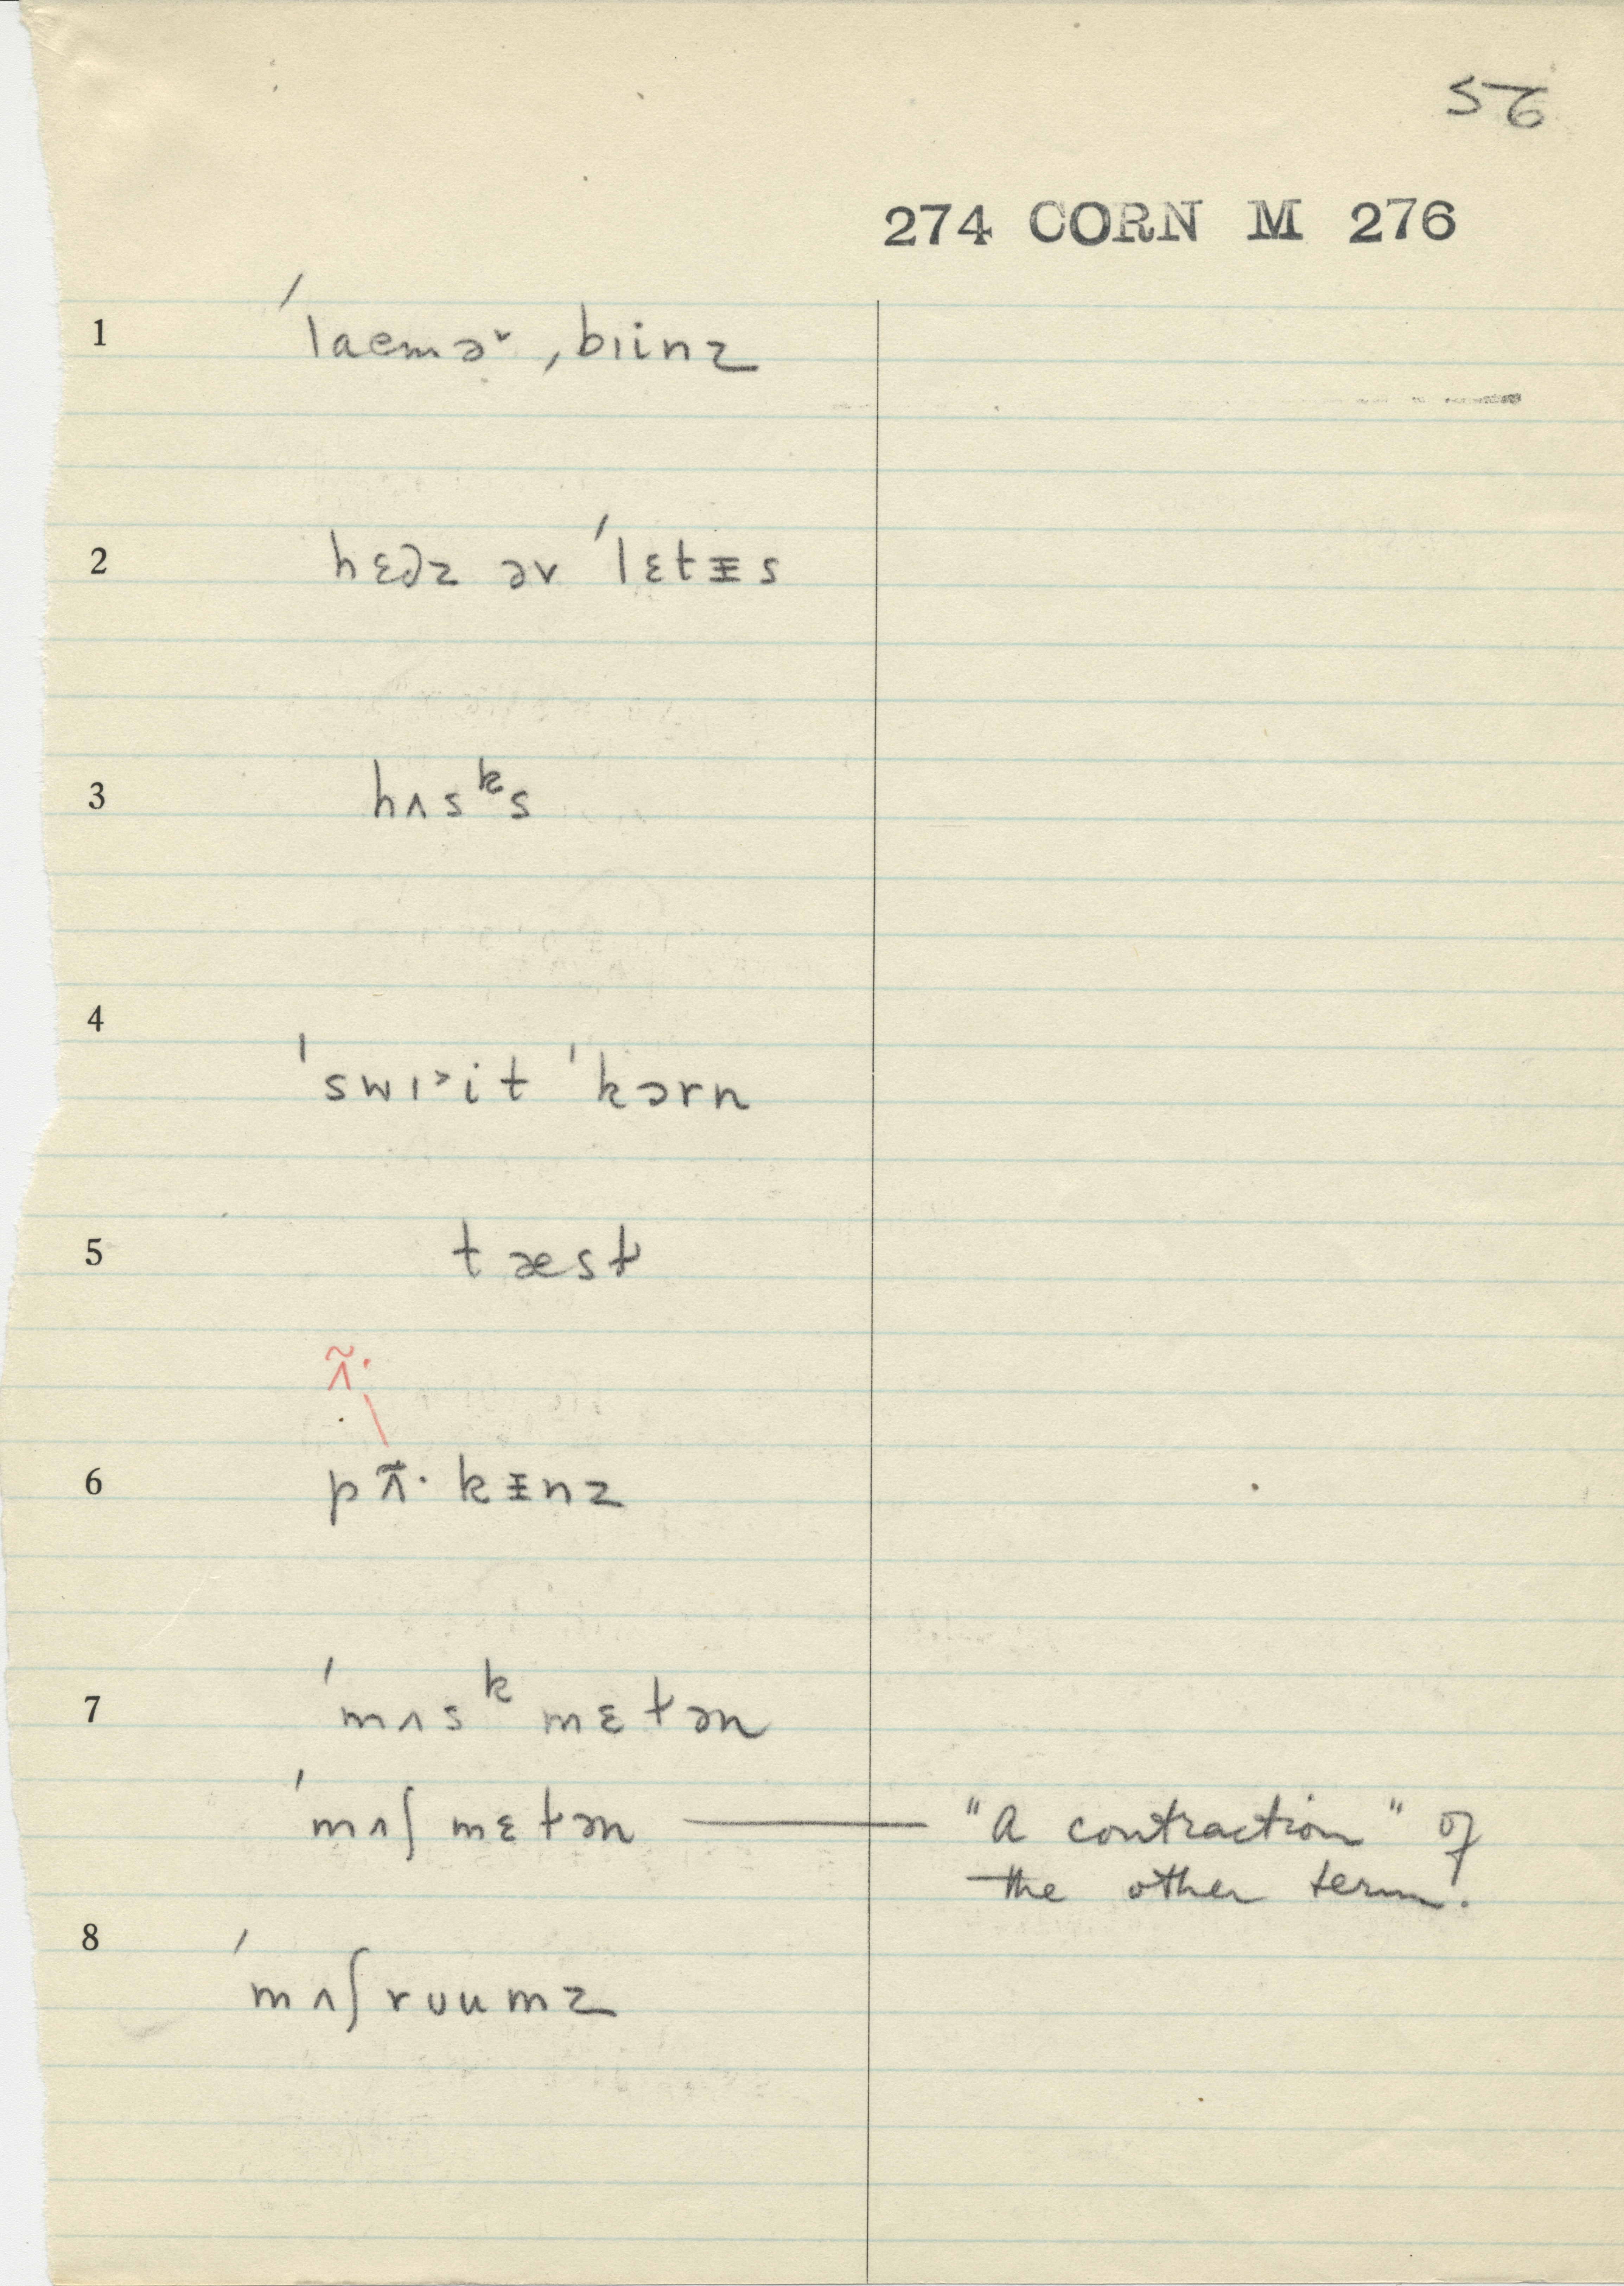 56
274 CORN M 276
1 ˈlaemə˅ ˌbɪinz
2 hɛdz əv ˈlɛtᵻs
3 hʌsᵏs
4 ˈswɪ˃it ˈkɔrn
5 tæsɫ
ʌ̃·
6 pʌ̃· kᵻnz
7 ˈmʌsᵏmɛlən
ˈmʌʃmɛlən — "A contraction" of
the other term.
8 ˈmʌʃrʊumz